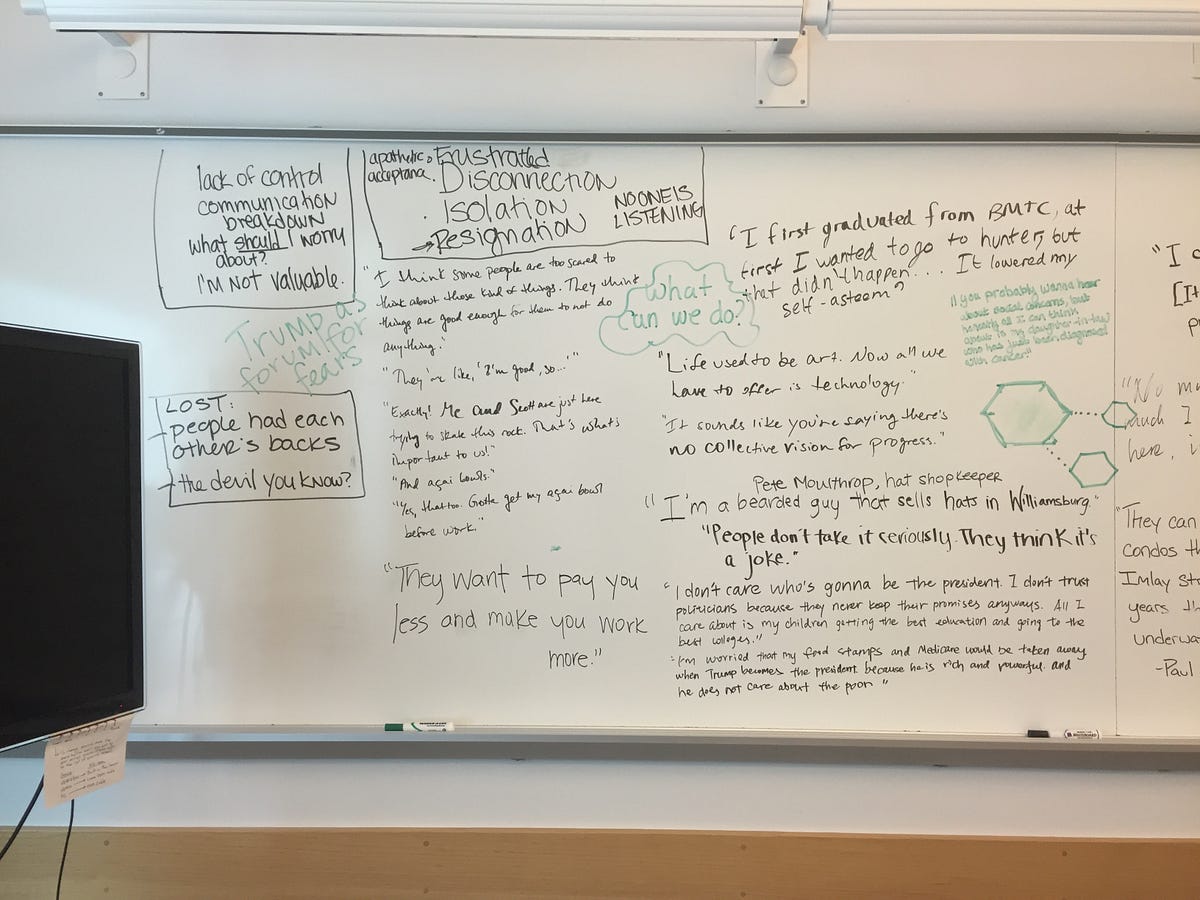 lack of control
communication
breakdown
what should I worry
about?
I'm NOT valuable.
apathetic
acceptana.
Frustrated
Disconnection
Isolation
Resignation
NO ONE IS
LISTENING
Trump as
forum for
fears
LOST:
- people had each
other's backs
- the devil you know?
"I think some people are too scared to
think about those kind of things. They think
things are good enough for them to not do
anything."
"They're like, 'I'm good, so...'"
"Exactly! Me and Scott are just here
trying to skate this rock. That's what's
important to us!"
"And açai bowls."
"Yes, that too. Gotta get my açai bowl
before work."
"They want to pay you
less and make you work
more."
What
can we do?
"I first graduated from BMTC, at
first I wanted to go to hunter, but
that didn't happen... It lowered my
self-asteem"
"you probably wanna hear
about social concerns, but
honestly all I can think
about is my daughter-in-law
who has just been diagnosed
with cancer."
"Life used to be art. Now all we
have to offer is technology."
"It sounds like you're saying there's
no collective vision for progress."
Pete Moulthrop, hat shopkeeper
"I'm a bearded guy that sells hats in Williamsburg."
"People don't take it seriously. They think it's
a joke."
"I don't care who's gonna be the president. I don't trust
politicians because they never keep their promises anyways. All I
care about is my children getting the best education and going to the
best colleges."
"I'm worried that my food stamps and Medicare would be taken away
when Trump becomes the president because he is rich and powerful and
he does not care about the poor"
"I
[It
"No
much I
here, i
"They can
condos th
Imlay Str
years th
underwa
-Paul